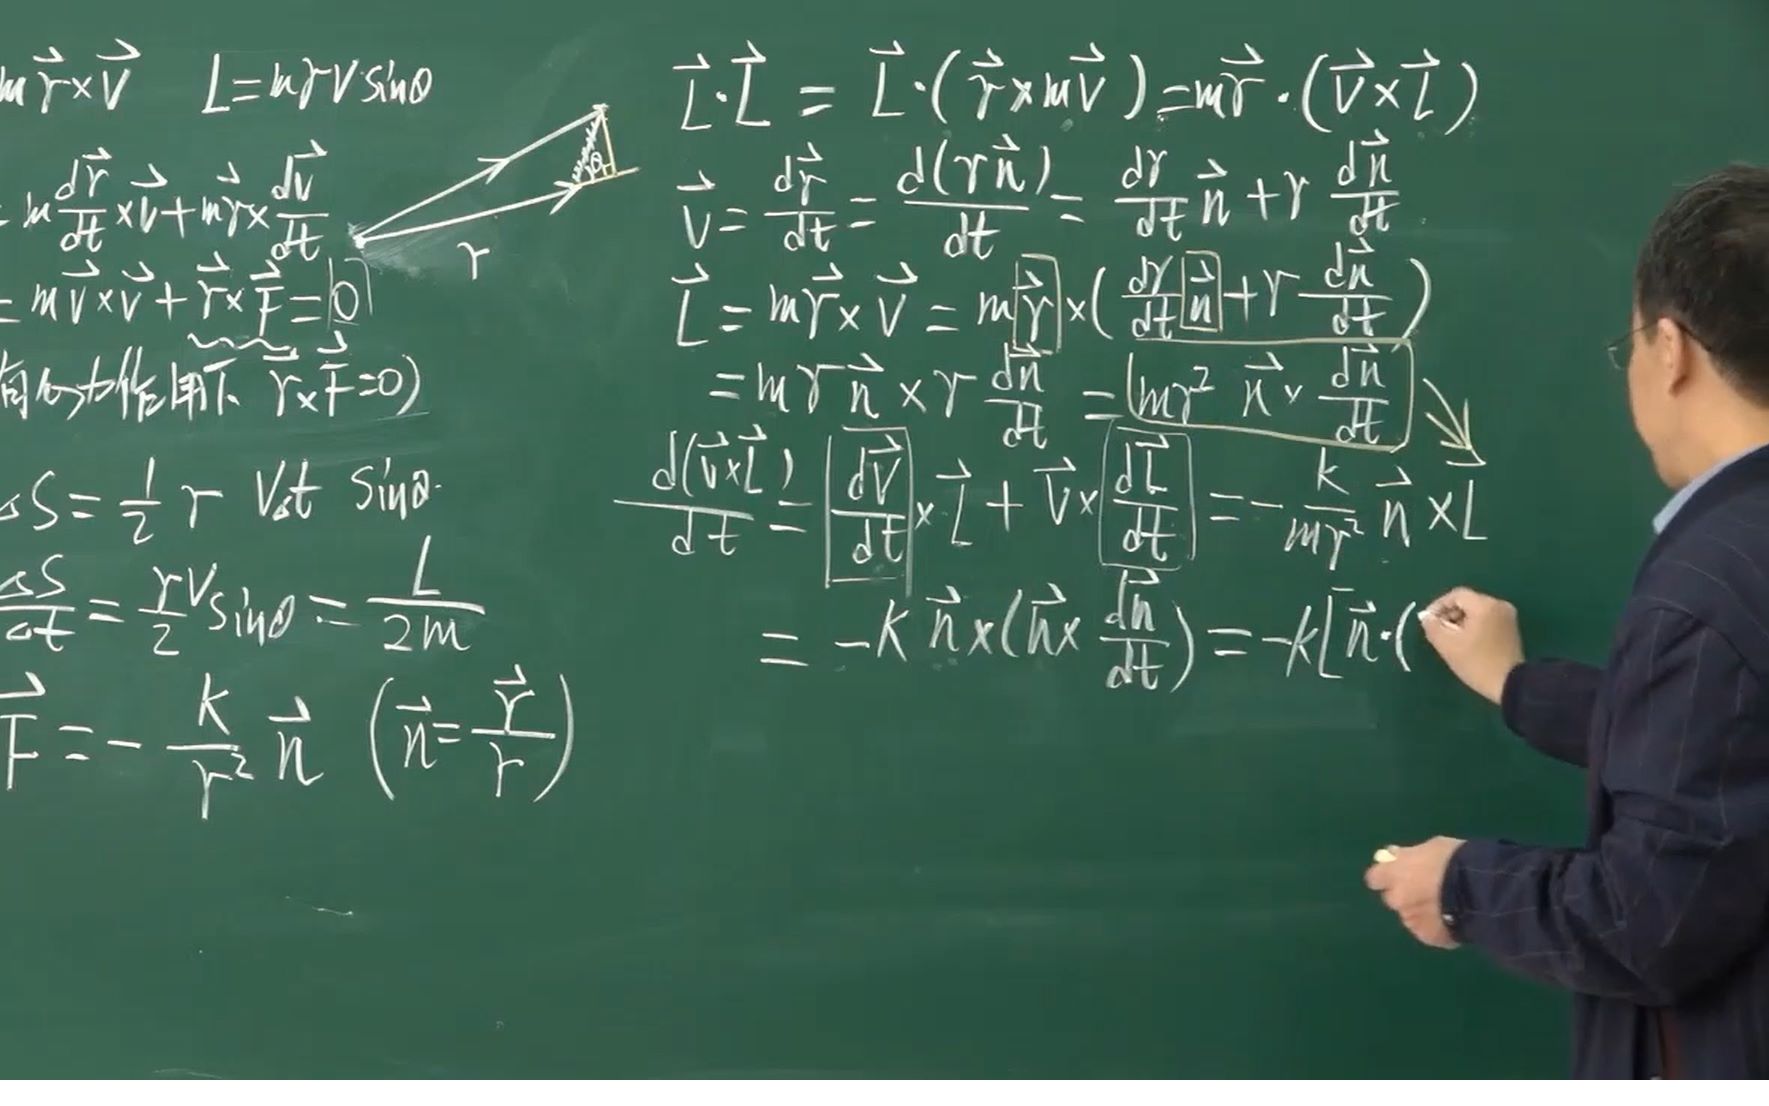 m\vec{r}×\vec{v}   L=mrv sinθ
= m\frac{d\vec{r}}{dt}×\vec{v}+m\vec{r}×\frac{d\vec{v}}{dt}
= m\vec{v}×\vec{v}+\vec{r}×\vec{F}=0
向心力作用下 \vec{r}×\vec{F}=0)
θ
r
ΔS=\frac{1}{2} r vΔt sinθ.
\frac{ΔS}{Δt}=\frac{r}{2}v sinθ=\frac{L}{2m}
\vec{F}=-\frac{k}{r^2}\vec{n} (\vec{n}=\frac{\vec{r}}{r})
\vec{L}·\vec{L}=\vec{L}·(\vec{r}×m\vec{v})=m\vec{r}·(\vec{v}×\vec{L})
\vec{v}=\frac{d\vec{r}}{dt}=\frac{d(r\vec{n})}{dt}=\frac{dr}{dt}\vec{n}+r\frac{d\vec{n}}{dt}
\vec{L}=m\vec{r}×\vec{v}=m\vec{r}×(\frac{dr}{dt}\vec{n}+r\frac{d\vec{n}}{dt})
=mr\vec{n}×r\frac{d\vec{n}}{dt}=mr^2 \vec{n}×\frac{d\vec{n}}{dt}
\frac{d(\vec{v}×\vec{L})}{dt}=\frac{d\vec{v}}{dt}×\vec{L}+\vec{v}×\frac{d\vec{L}}{dt}=-\frac{k}{mr^2}\vec{n}×\vec{L}
=-k\vec{n}×(\vec{n}×\frac{d\vec{n}}{dt})=-k[\vec{n}·(